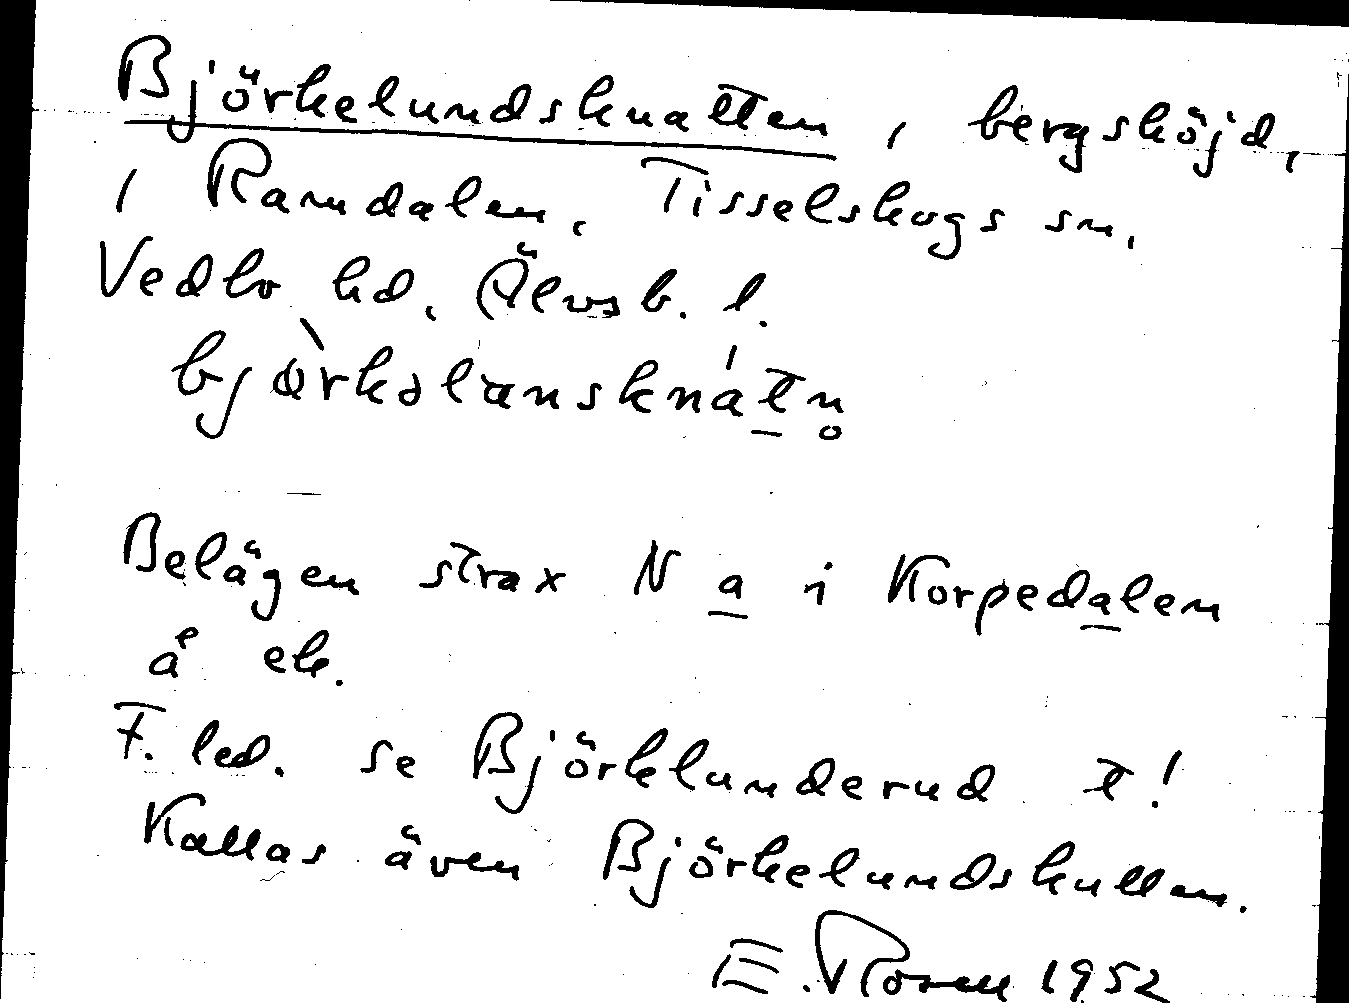 Björkelundsknatten, bergshöjd,
i Ramdalen, Tisselskogs sn,
Vedbo hd, Älvsb. l.
Belägen strax N a i Korpedalen
å ek.
F. led. se Björklunderud t!
Kallas även Björkelundskullen.
E. Rosell 1952